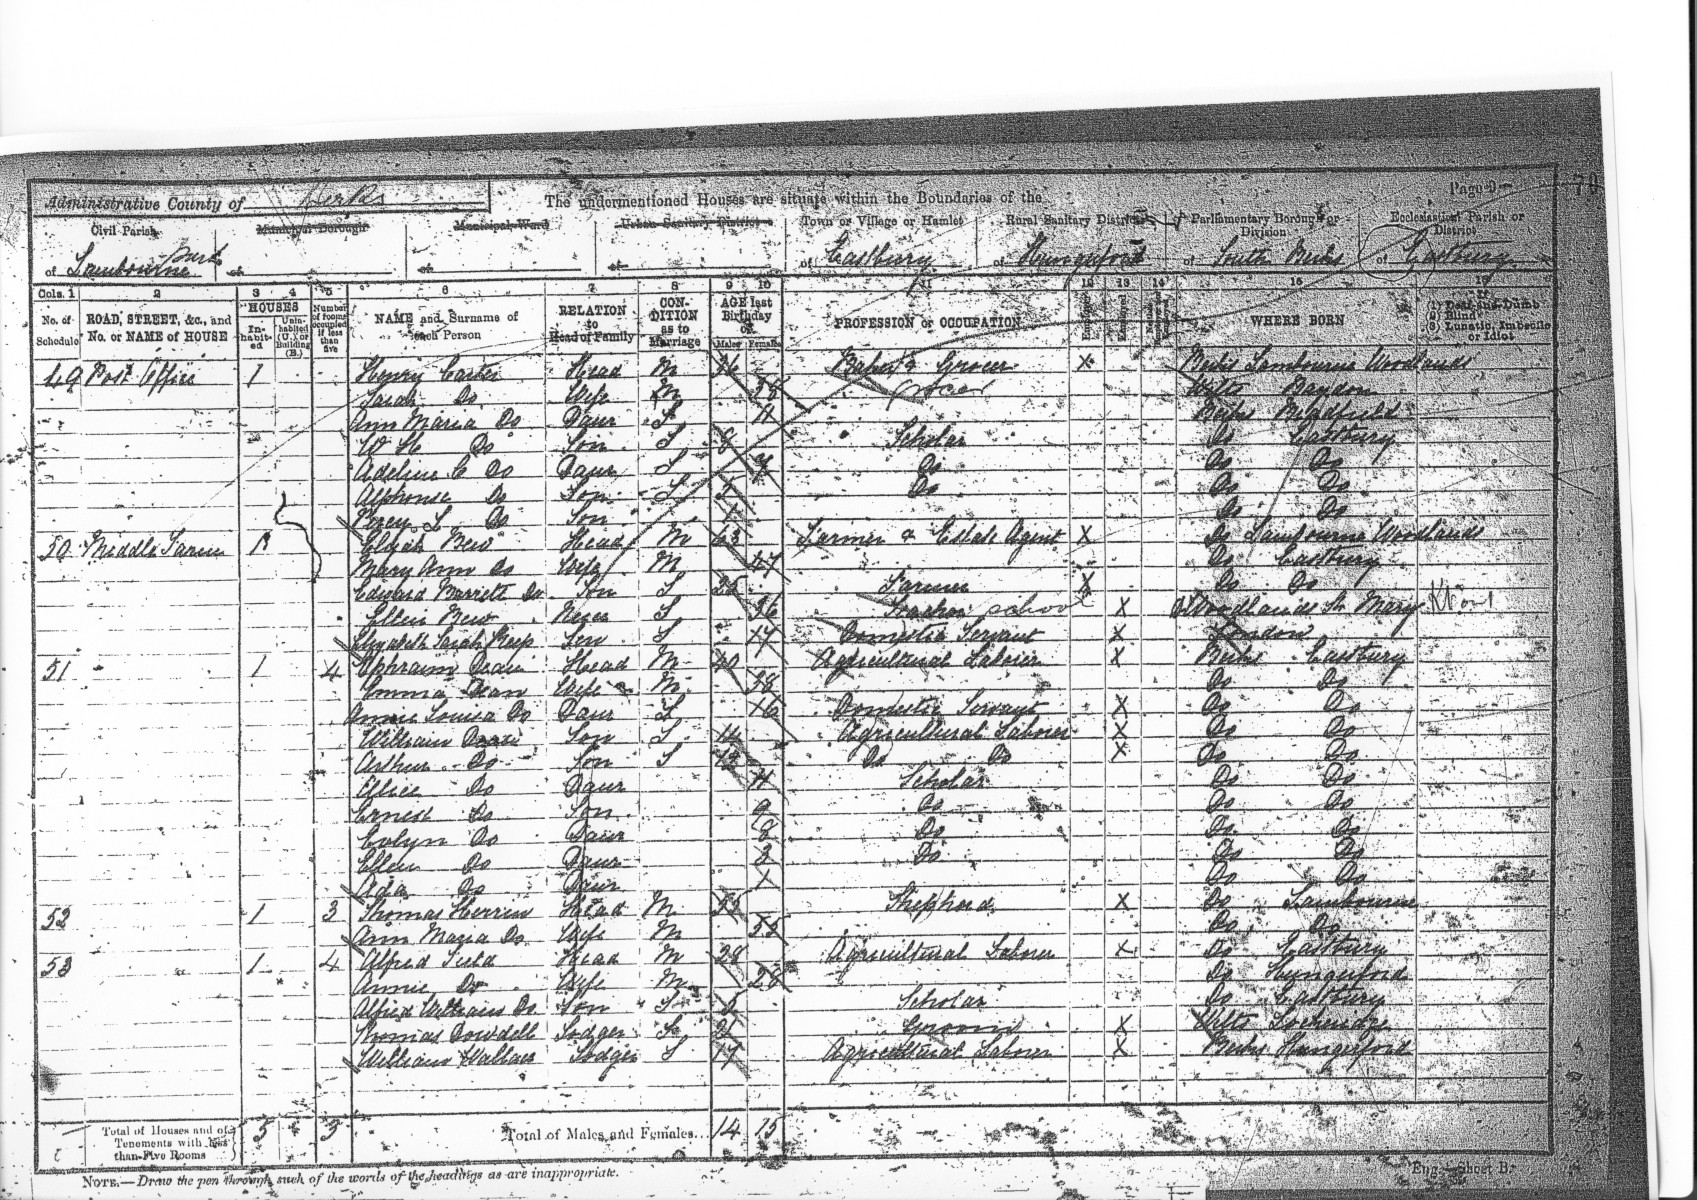 Page 9
70
Administrative County of Berks
The undermentioned Houses are situate within the Boundaries of the
Civil Parish
Municipal Borough
Municipal Ward
Urban Sanitary District
Town or Village or Hamlet
Rural Sanitary District
Parliamentary Borough or Division
Ecclesiastical Parish or District
of Lambourne Part
of
of
of
of Eastbury
of Hungerford
of South Berks
of Eastbury
Cols. 1 2 3 4 5 6 7 8 9 10 11 12 13 14 15 16
No. of Schedule
ROAD, STREET, &c., and No. or NAME of HOUSE
HOUSES
In-habit-ed
Unin-habited (U.) or Building (B.)
Number of rooms occupied if less than five
NAME and Surname of each Person
RELATION to Head of Family
CON-DITION as to Marriage
AGE last Birthday of
Males Females
PROFESSION or OCCUPATION
Employer
Employed
WHERE BORN
(1) Deaf-and-Dumb
(2) Blind
(3) Lunatic, Imbecile or Idiot
49 Post Office 1 Henry Carter Head M 36 Baker & Grocer X Berks Lambourne Woodlands
Sarah Do Wife M 38 Wilts Baydon
Ann Maria Do Daur S 11 Berks Bradfield
W H Do Son S 8 Scholar Do Eastbury
Adeline C Do Daur S 7 Do Do Do
Alphonse Do Son S 5 Do Do Do
Percy L Do Son 1 Do Do
50 Middle Farm 1 Elijah New Head M 63 Farmer & Estate Agent X Do Lambourne Woodlands
Mary Ann Do Wife M 47 Do Eastbury
Edward Barrett Do Son S 25 Farmer X Do Do
Ellen New Niece S 36 Teacher school X Do Woodlands St Mary
Elizabeth Sarah Serv S 17 Domestic Servant X London
51 1 4 Ephraim Dean Head M 40 Agricultural Labourer X Berks Eastbury
Emma Dean Wife M 38 Do Do
Annie Louisa Do Daur S 16 Domestic Servant X Do Do
William Dean Son S 14 Agricultural Labourer X Do Do
Arthur Do Son S 13 Do Do X Do Do
Alice Do Daur 11 Scholar Do Do
Ernest Do Son 9 Do Do Do
Evelyn Do Daur Do Do Do
Ellen Do Daur 3 Do Do Do
Ada Do Daur 1 Do Do
52 1 3 Thomas Herring Head M 55 Shepherd X Do Lambourne
Ann Maria Do Wife M 55 Do Do
53 1 4 Alfred Field Head M 28 Agricultural Labourer X Do Eastbury
Annie Do Wife M 28 Do Hungerford
Alfred William Do Son S 5 Scholar Do Eastbury
Thomas Dowdell Lodger S 21 Groom X Wilts Lockeridge
William Wallace Lodger S 17 Agricultural Labourer X Berks Hungerford
Total of Houses and of Tenements with less than Five Rooms 5 3 Total of Males and Females... 14 15
NOTE.—Draw the pen through such of the words of the headings as are inappropriate.
Eng.—Sheet B.